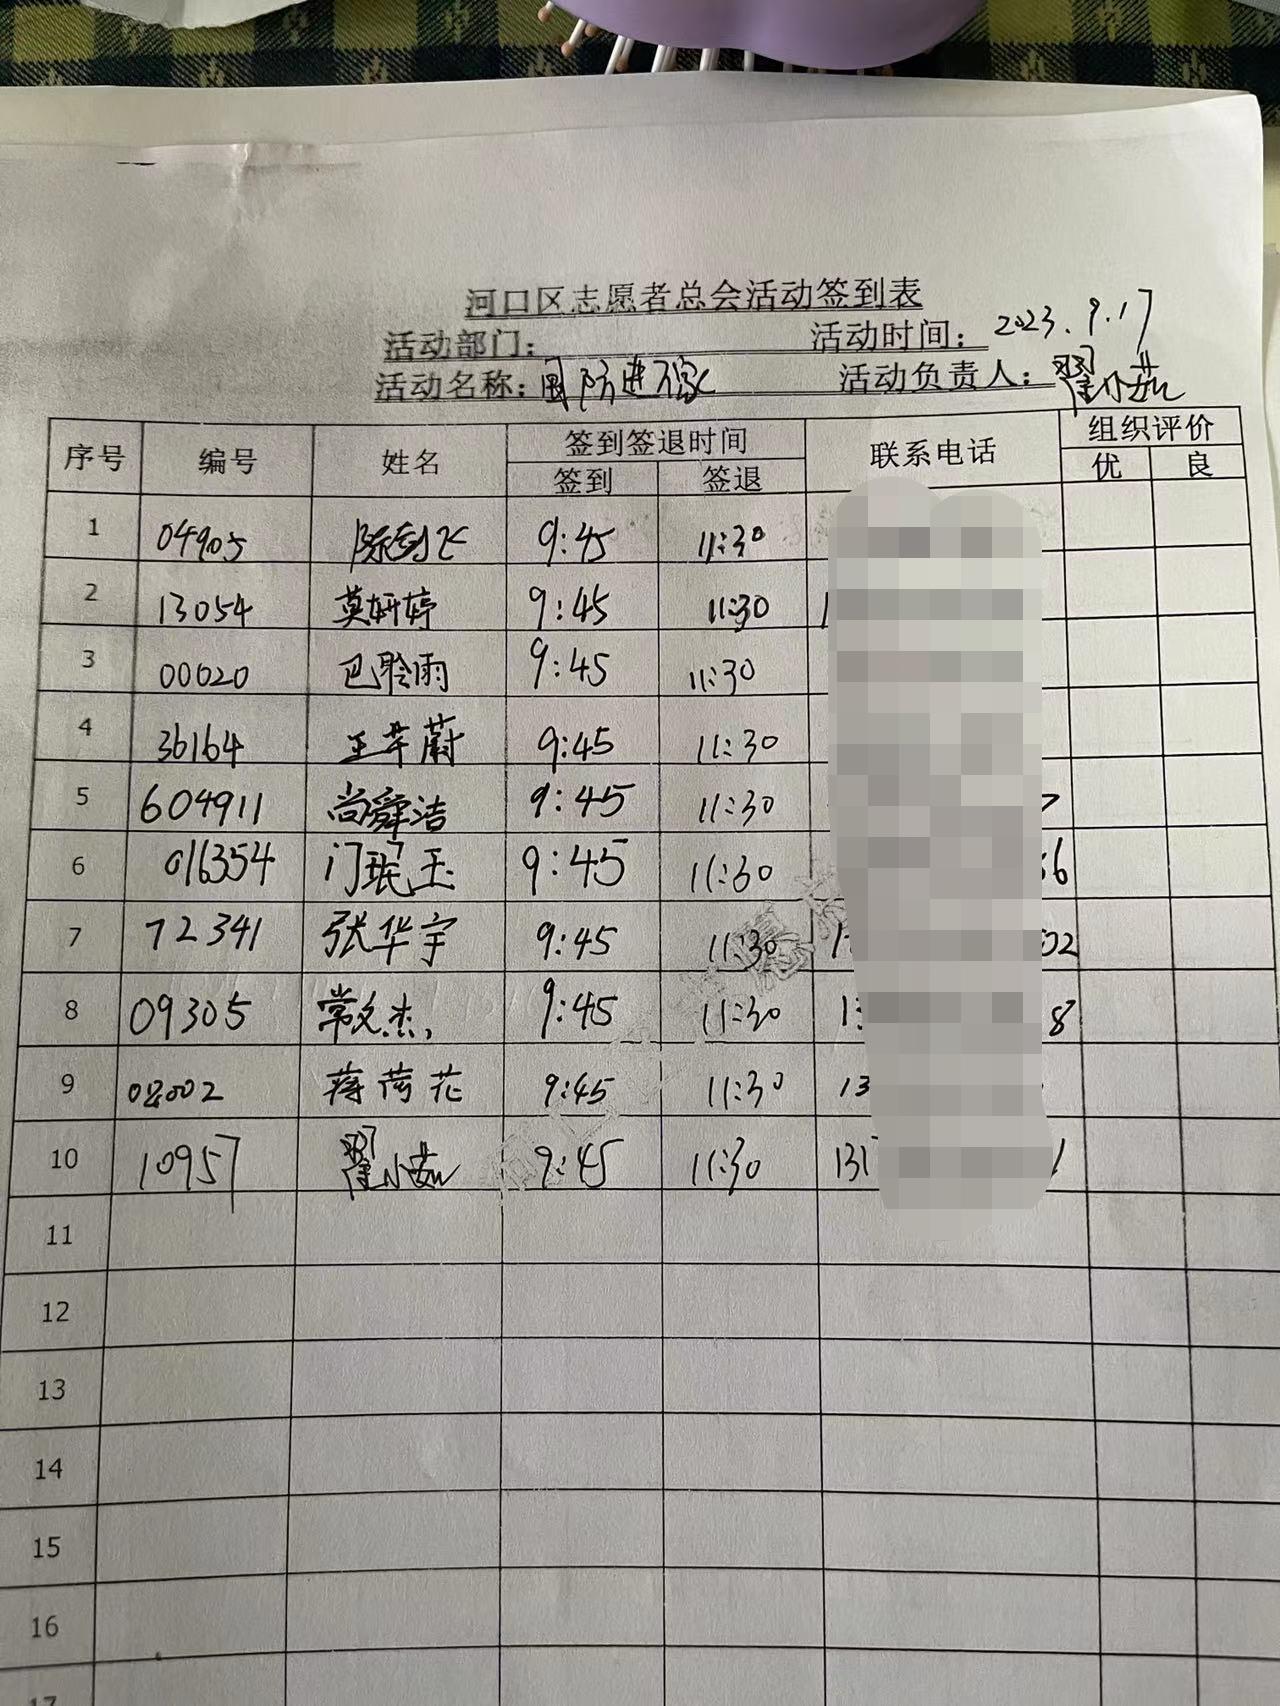 河口区志愿者总会活动签到表
活动部门： 活动时间：2023.9.17
活动名称：国防进万家 活动负责人：翟小茹
序号 编号 姓名 签到签退时间 联系电话 组织评价
签到 签退 优 良
1 04905 陈剑飞 9:45 11:30
2 13054 莫妍婷 9:45 11:30 1
3 00020 巴聆雨 9:45 11:30
4 36164 王芊蔚 9:45 11:30
5 604911 尚舜洁 9:45 11:30
6 016354 门珉玉 9:45 11:30 6
7 72341 张华宇 9:45 11:30 1 02
8 09305 常文杰 9:45 11:30 13 8
9 08002 蒋荷花 9:45 11:30 13
10 10957 翟小茹 9:45 11:30 131 1
11
12
13
14
15
16
17